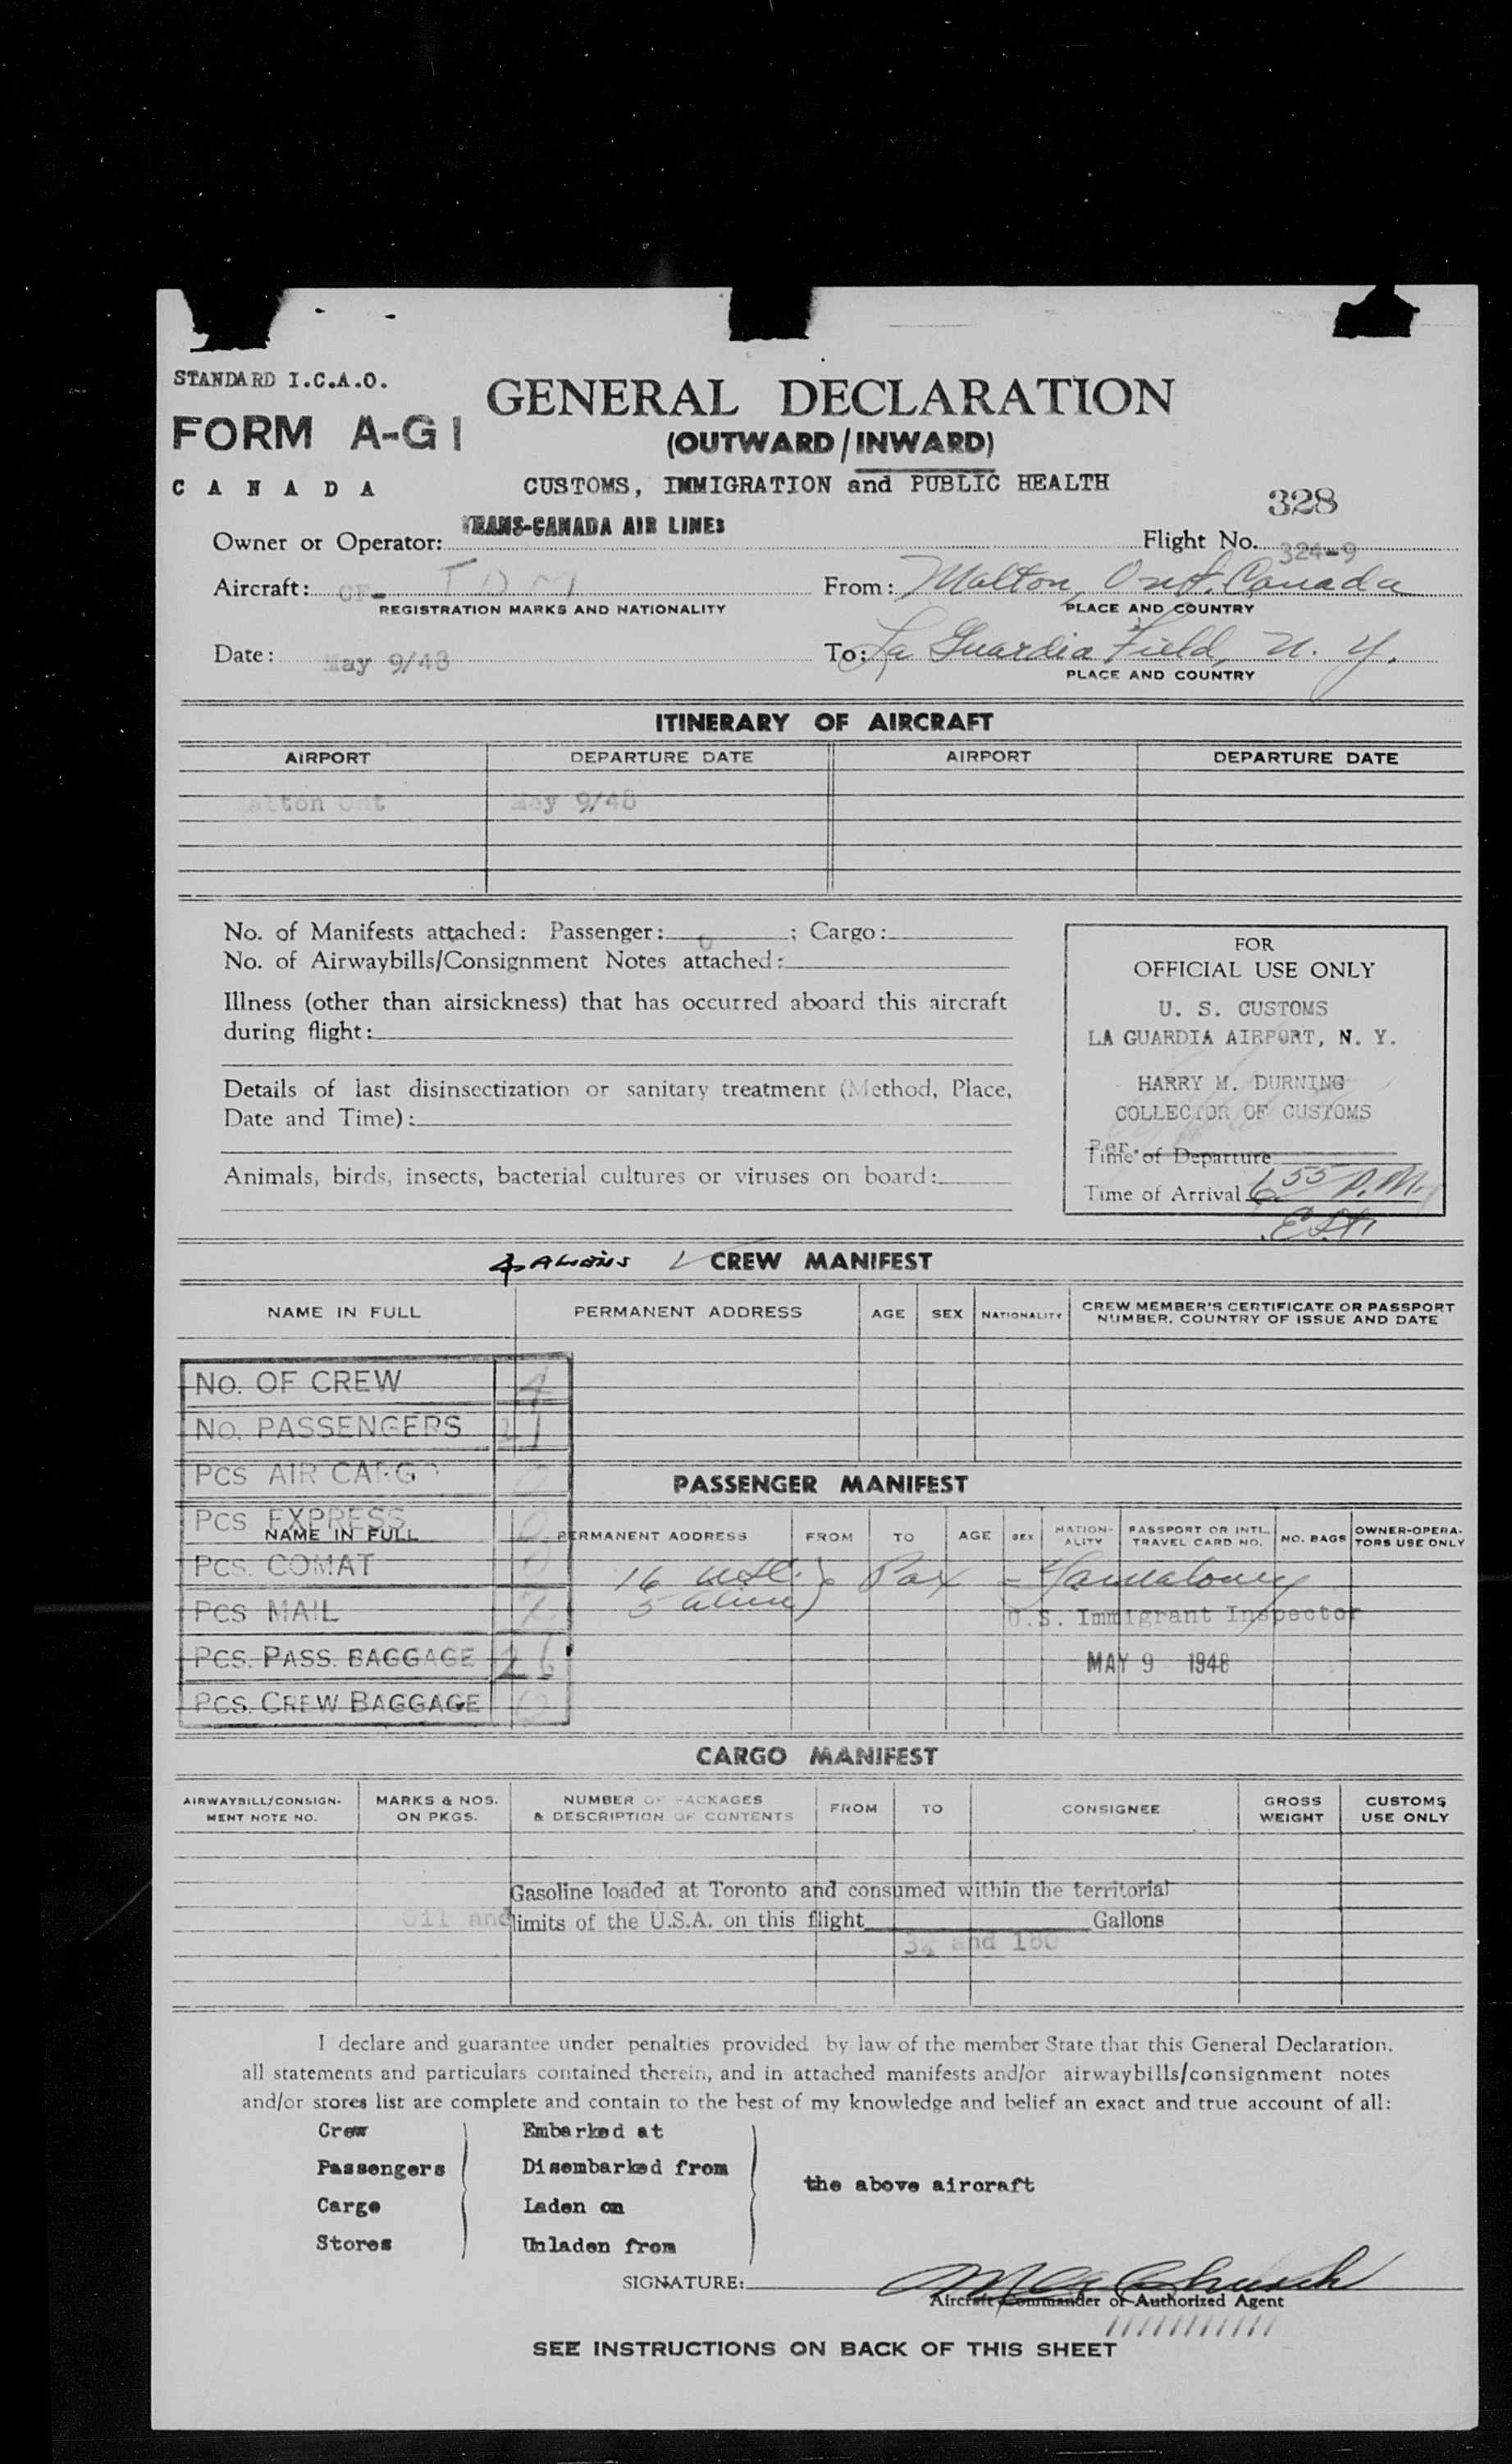 STANDARD I.C.A.O.
GENERAL DECLARATION
FORM A-G1
(OUTWARD/INWARD)
CANADA
CUSTOMS, IMMIGRATION and PUBLIC HEALTH
328
Owner or Operator: TRANS-CANADA AIR LINES
Flight No. 324-9
Aircraft: CF- TDM
REGISTRATION MARKS AND NATIONALITY
From: Malton, Ont. Canada
PLACE AND COUNTRY
Date: May 9/48
To: La Guardia Field, N. Y.
PLACE AND COUNTRY
ITINERARY OF AIRCRAFT
AIRPORT DEPARTURE DATE AIRPORT DEPARTURE DATE
Malton Ont May 9/48
No. of Manifests attached: Passenger: ; Cargo:
No. of Airwaybills/Consignment Notes attached:
Illness (other than airsickness) that has occurred aboard this aircraft
during flight:
Details of last disinsectization or sanitary treatment (Method, Place,
Date and Time):
Animals, birds, insects, bacterial cultures or viruses on board:
FOR
OFFICIAL USE ONLY
U. S. CUSTOMS
LA GUARDIA AIRPORT, N. Y.
HARRY M. DURNING
COLLECTOR OF CUSTOMS
Per.
Time of Departure
Time of Arrival 6 55 P.M.
E.S.T.
4 ALIENS CREW MANIFEST
NAME IN FULL PERMANENT ADDRESS AGE SEX NATIONALITY CREW MEMBER'S CERTIFICATE OR PASSPORT
NUMBER, COUNTRY OF ISSUE AND DATE
No. OF CREW 4
No. PASSENGERS 21
PCS AIR CARGO 0
PASSENGER MANIFEST
PCS EXPRESS 0
NAME IN FULL PERMANENT ADDRESS FROM TO AGE SEX NATION-
ALITY PASSPORT OR INTL.
TRAVEL CARD NO. NO. BAGS OWNER-OPERA-
TORS USE ONLY
PCS. COMAT 0
16 Pax
5
PCS MAIL
U.S. Immigrant Inspector
PCS. PASS. BAGGAGE 26
MAY 9 1948
PCS. CREW BAGGAGE 0
CARGO MANIFEST
AIRWAYBILL/CONSIGN-
MENT NOTE NO. MARKS & NOS.
ON PKGS. NUMBER OF PACKAGES
& DESCRIPTION OF CONTENTS FROM TO CONSIGNEE GROSS
WEIGHT CUSTOMS
USE ONLY
Gasoline loaded at Toronto and consumed within the territorial
Oil and limits of the U.S.A. on this flight Gallons
3¼ and 180
I declare and guarantee under penalties provided by law of the member State that this General Declaration,
all statements and particulars contained therein, and in attached manifests and/or airwaybills/consignment notes
and/or stores list are complete and contain to the best of my knowledge and belief an exact and true account of all:
Crew Embarked at
Passengers Disembarked from
the above aircraft
Cargo Laden on
Stores Unladen from
SIGNATURE:
Aircraft Commander or Authorized Agent
SEE INSTRUCTIONS ON BACK OF THIS SHEET